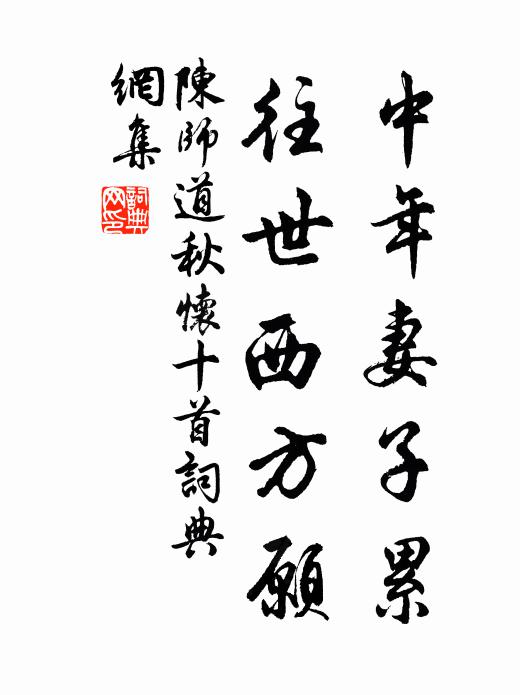 中年妻子累
往世西方願
陳師道秋懷十首詞典
網集
詞典
網印